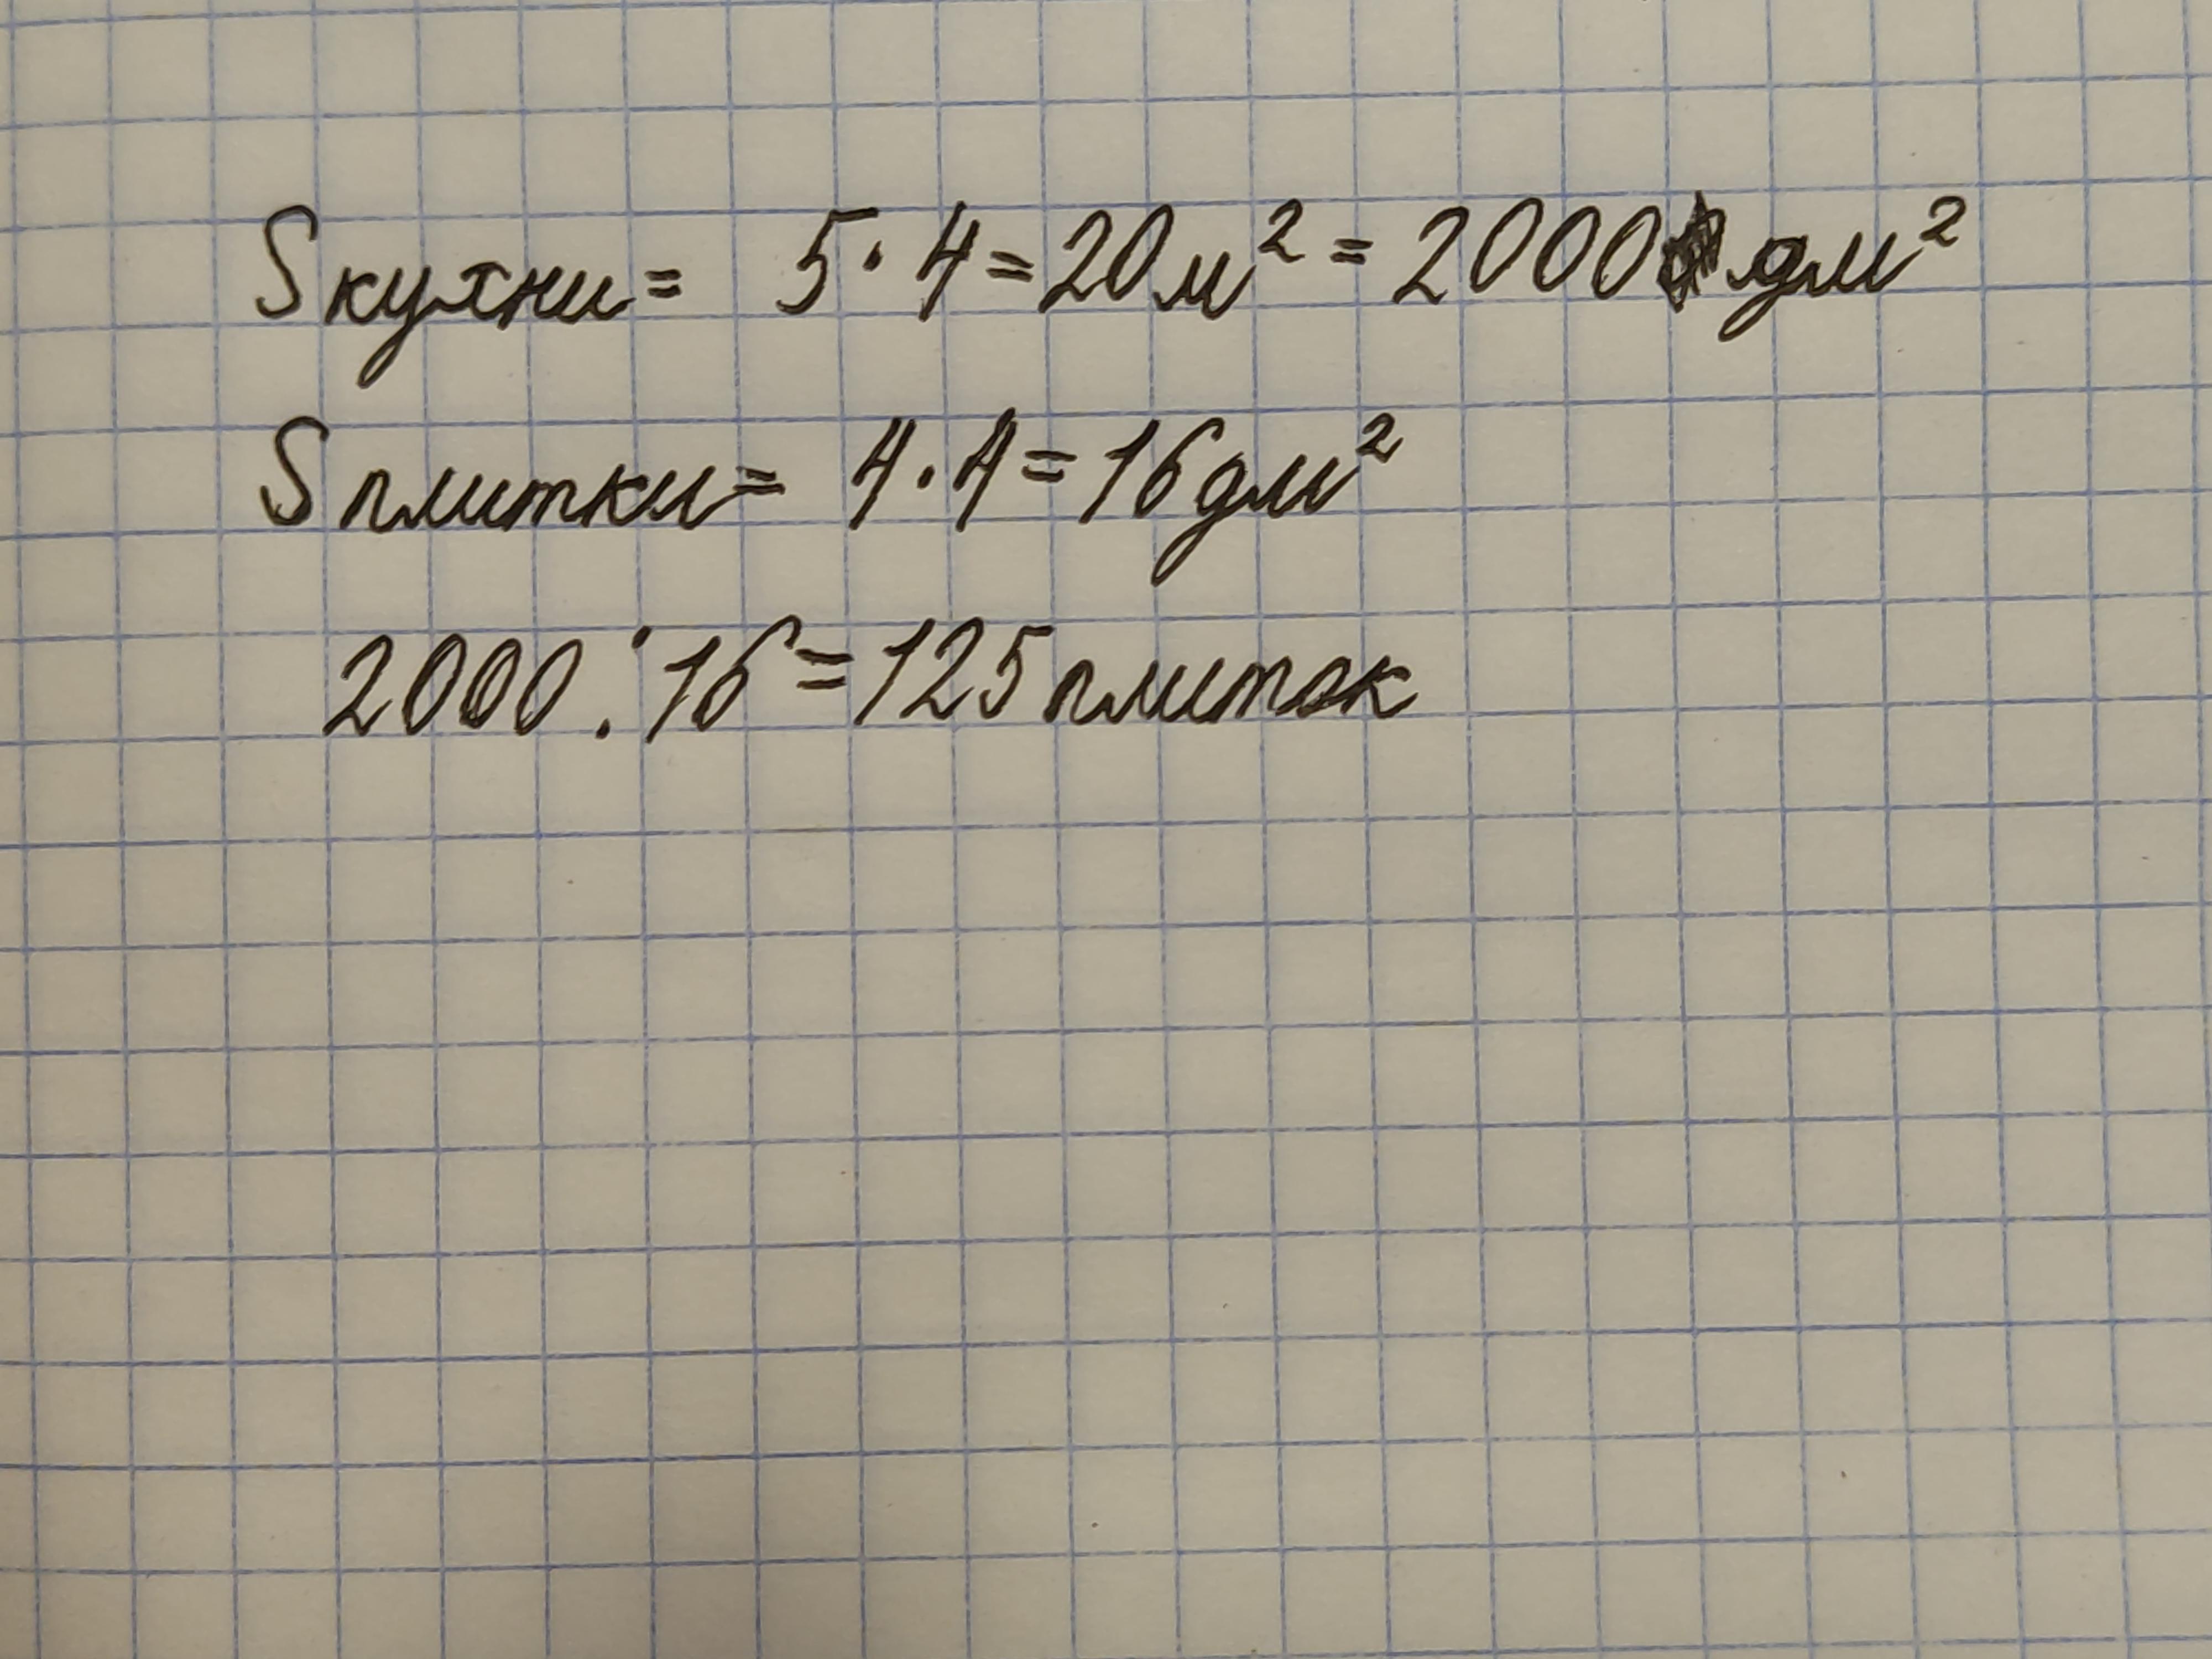 Sкухни= 5·4=20м²=2000дм²
Sплитки= 4·4=16дм²
2000:16=125плиток